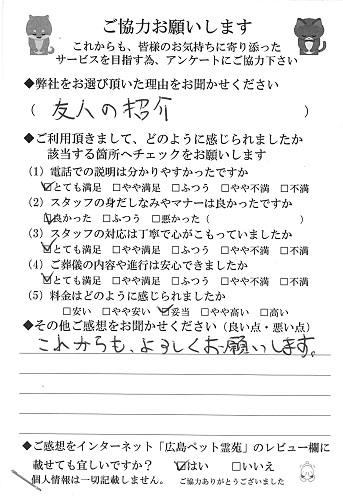 ご協力お願いします
これからも、皆様のお気持ちに寄り添った
サービスを目指す為、アンケートにご協力下さい
◆弊社をお選び頂いた理由をお聞かせください
( 友人の紹介 )
◆ご利用頂きまして、どのように感じられましたか
該当する箇所へチェックをお願いします
(1) 電話での説明は分かりやすかったですか
☑とても満足 □やや満足 □ふつう □やや不満 □不満
(2) スタッフの身だしなみやマナーは良かったですか
☑良かった □ふつう □悪かった( )
(3) スタッフの対応は丁寧で心がこもっていましたか
☑とても満足 □やや満足 □ふつう □やや不満 □不満
(4) ご葬儀の内容や進行は安心できましたか
☑とても満足 □やや満足 □ふつう □やや不満 □不満
(5) 料金はどのように感じられましたか
□安い □やや安い ☑妥当 □やや高い □高い
◆その他ご感想をお聞かせください(良い点・悪い点)
これからも、よろしくお願いします。
◆ご感想をインターネット「広島ペット霊苑」のレビュー欄に
載せても宜しいですか? ☑はい □いいえ
個人情報は一切記載しません。 ご協力ありがとうございました